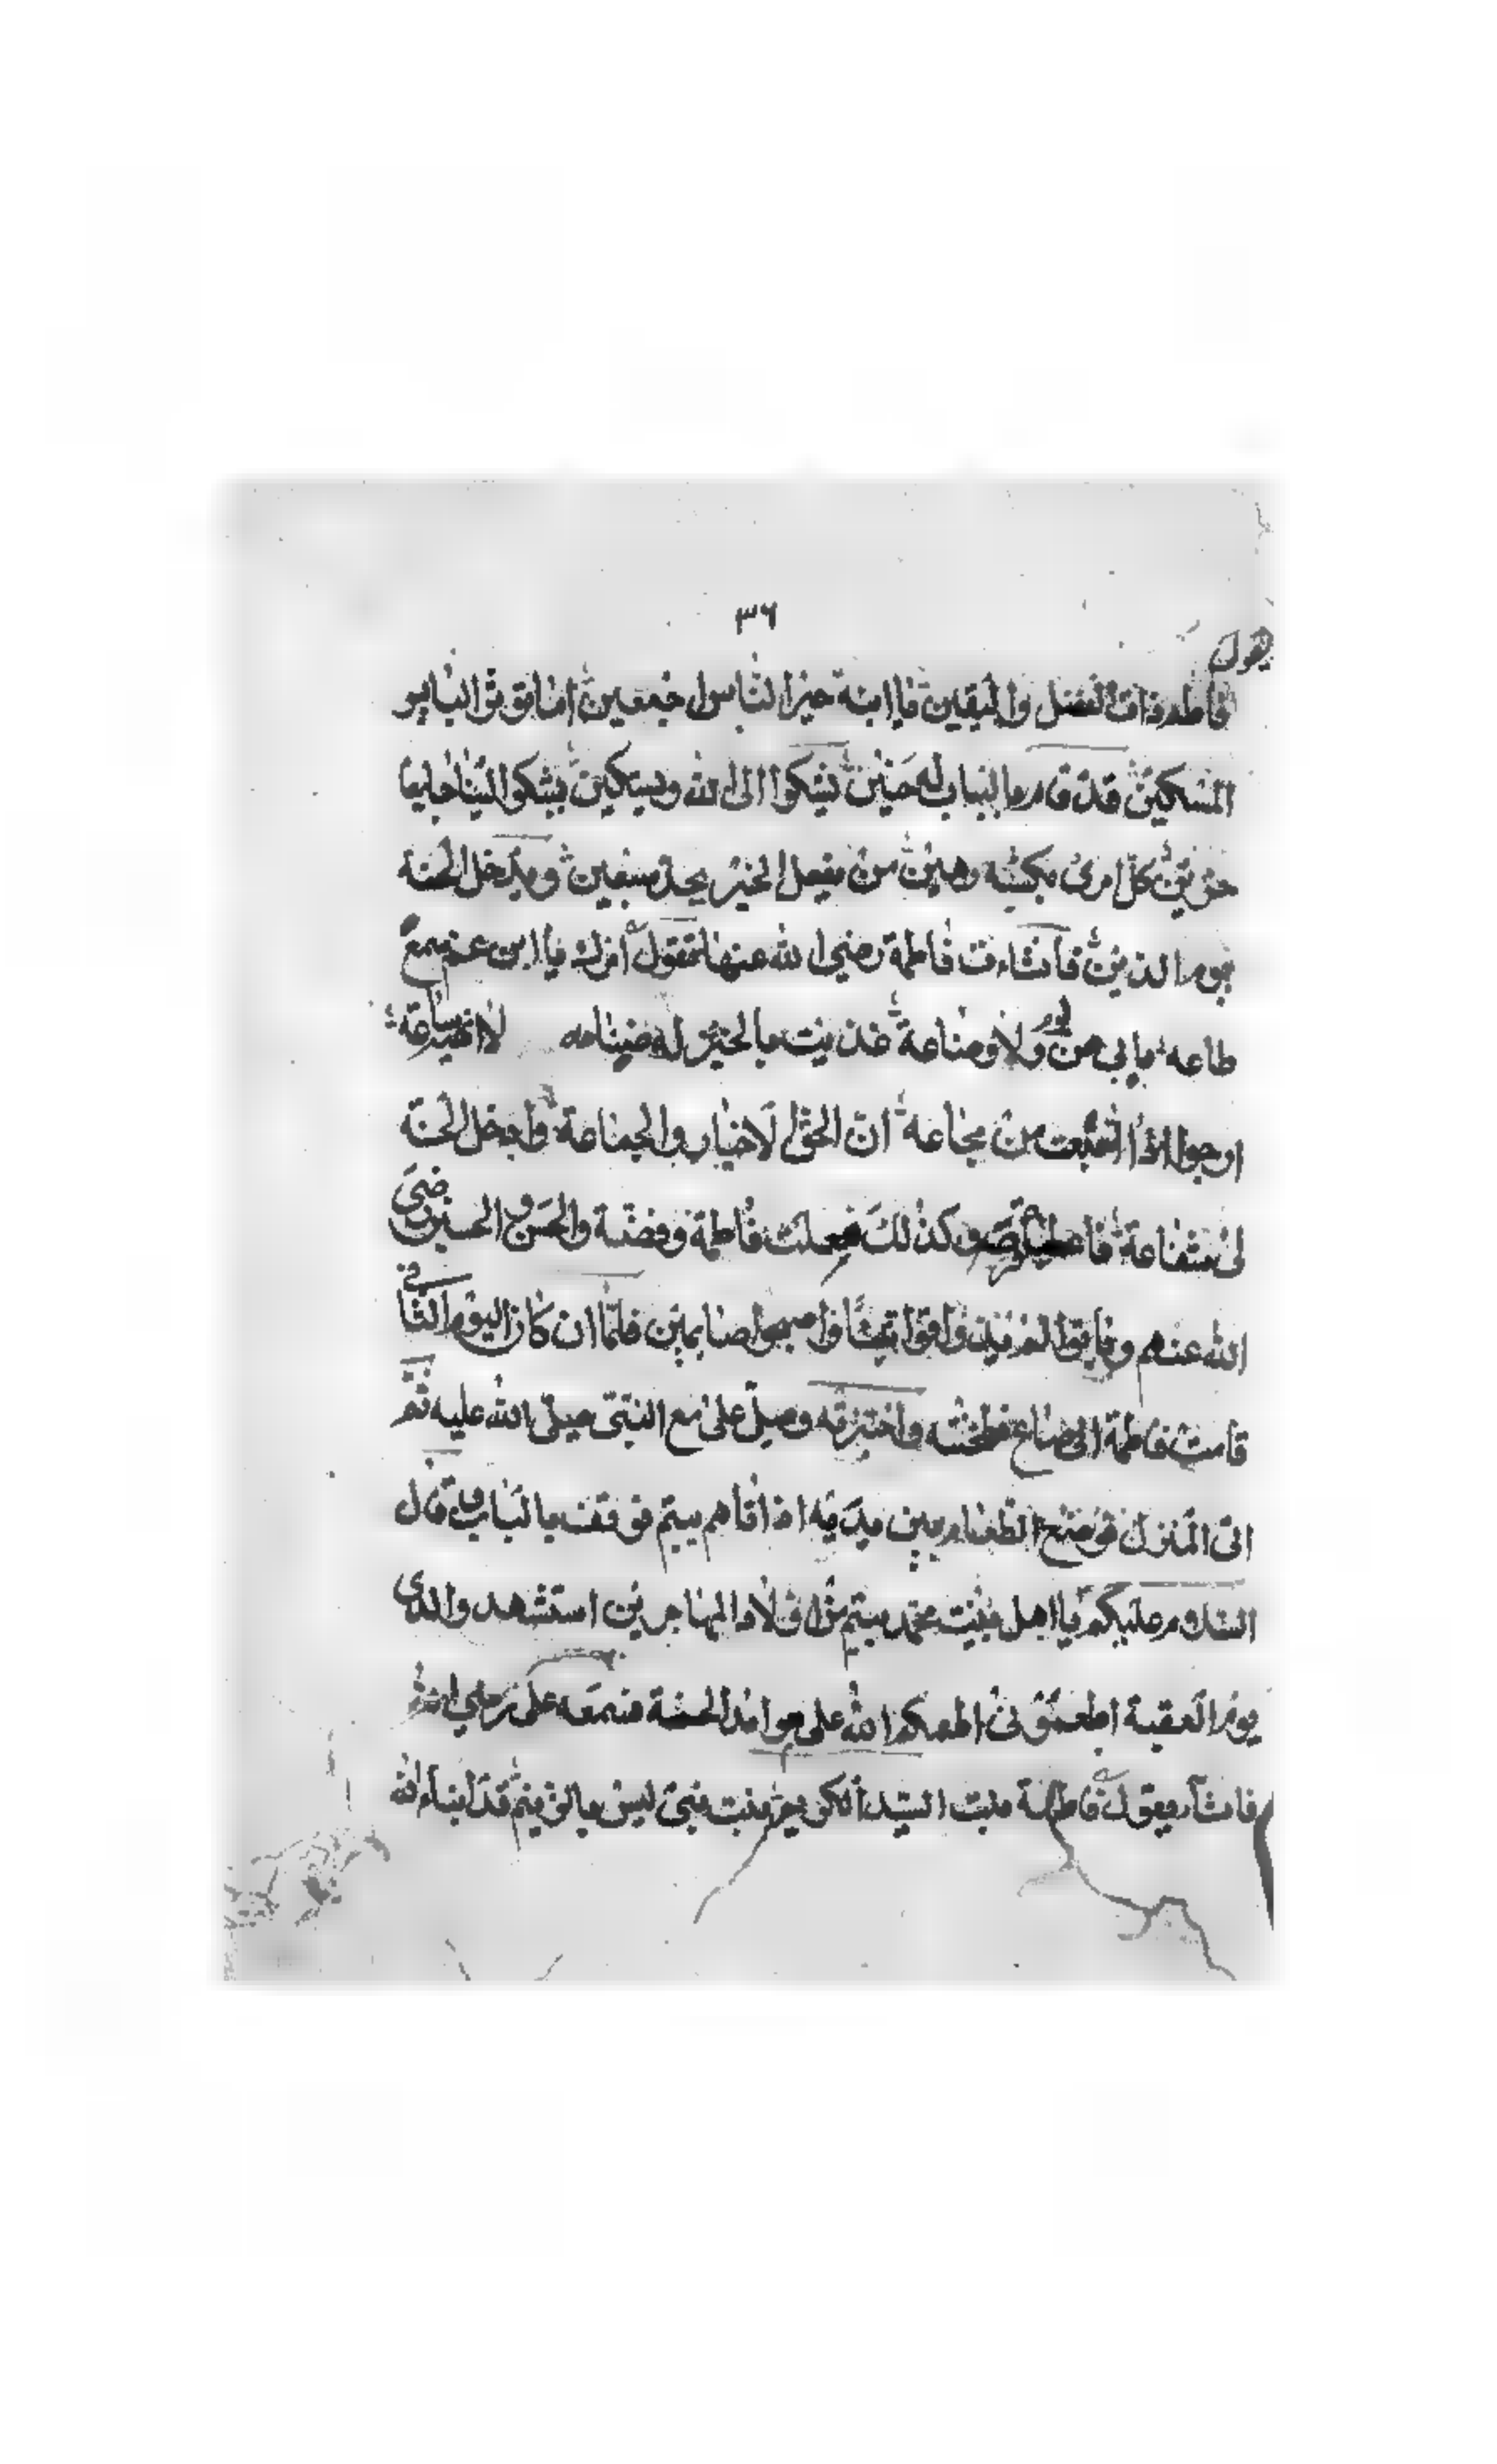 ٣٦
يقول
فاطم ذات الفضل واليقين يا ابنة خير الناس اجمعين اما ترين البايس
المسكين قد قام بالباب له حنين يشكوا الى الله ويستكين يشكوا الينا جايعا
حزين كل امرئ بكسبه رهين من يفعل الخير يجد سمين ويدخل الجنة
يوم الدين فانشاءت فاطمة رضي الله عنها تقول امرك يا ابن عم سمع
طاعه ما بي من لوم ولا وضاعة غذيت بالخبز له صناعه لا انهيه ساعة
ارجوا اذا اشبعت من مجاعة ان الحق الاخيار والجماعة وادخل الجنة
لى شفاعة وكذلك فعلت فاطمة وفضة والحسن والحسين رضى
الله عنهم واصبحوا صايمين فلما ان كان اليوم الثانى
قامت فاطمة الى صاع فطحنته واختبزته وصلى على مع النبى صلى الله عليه ثم
اتى المنزل فوضع الطعام بين يديه اذ اتاهم يتيم فوقف بالباب وقال
السلام عليكم يا اهل بيت محمد يتيم من اولاد المهاجرين استشهد والدى
يوم العقبة اطعمونى اطعمكم الله على موايد الجنة فسمعه على رضي الله
فانشأ يقول فاطمة بنت السيد الكريم بنت نبى ليس بالزنيم قد